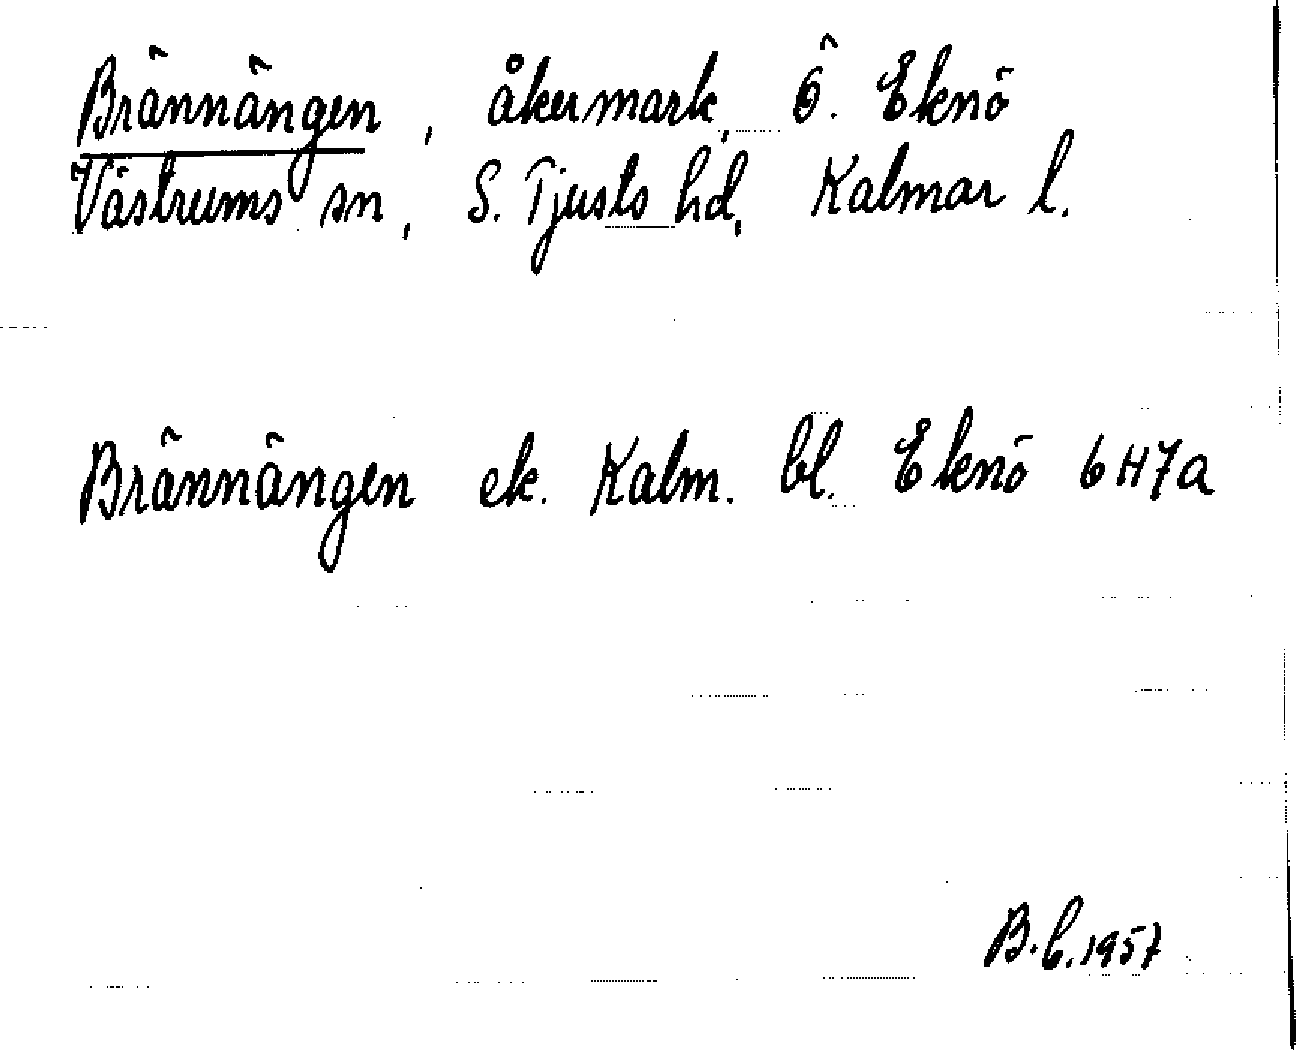 Brännängen, åkermark, Ö. Eknö
Västrums sn, S. Tjusts hd, Kalmar l.
Brännängen ek. Kalm. bl. Eknö 6H7a
B.b.1957